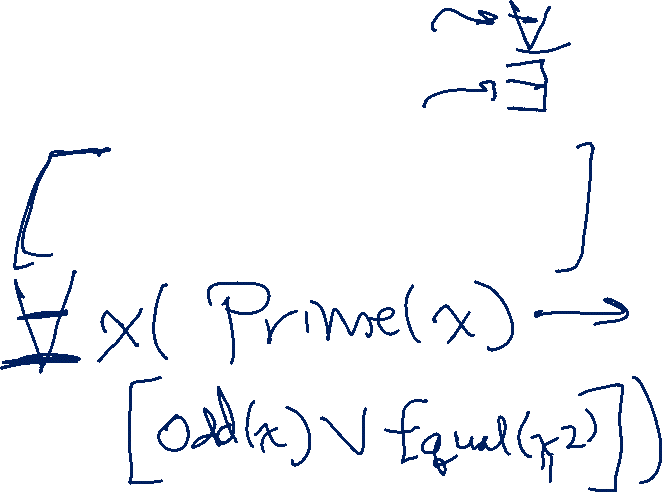 → ∀
→ ∃
[ ]
∀x( Prime(x) →
[Odd(x) ∨ Equal(x,2)])